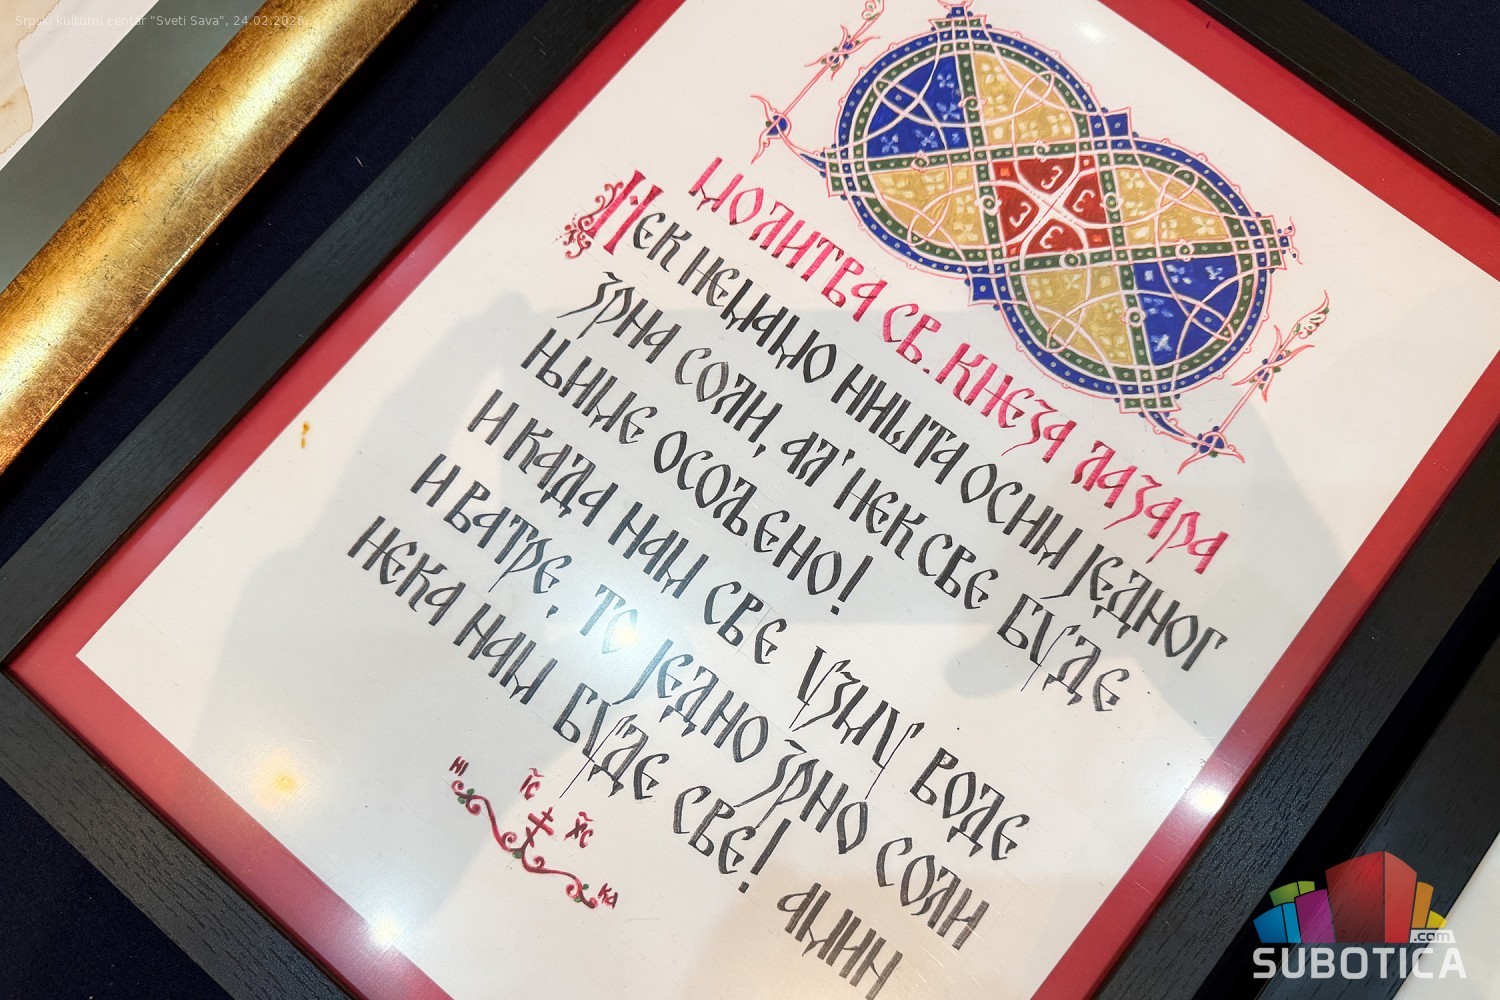 Srpski kulturni centar "Sveti Sava", 24.02.2026.
МОЛИТВА СВ. КНЕЗА ЛАЗАРА
НЕК НЕМАМО НИШТА ОСИМ ЈЕДНОГ
ЗРНА СОЛИ, АЛ' НЕК СВЕ БУДЕ
ЊИМЕ ОСОЉЕНО!
И КАДА НАМ СВЕ УЗМУ ВОДЕ
И ВАТРЕ, ТО ЈЕДНО ЗРНО СОЛИ
НЕКА НАМ БУДЕ СВЕ! АМИН
ІС ХС
НИ КА
.com
SUBOTICA